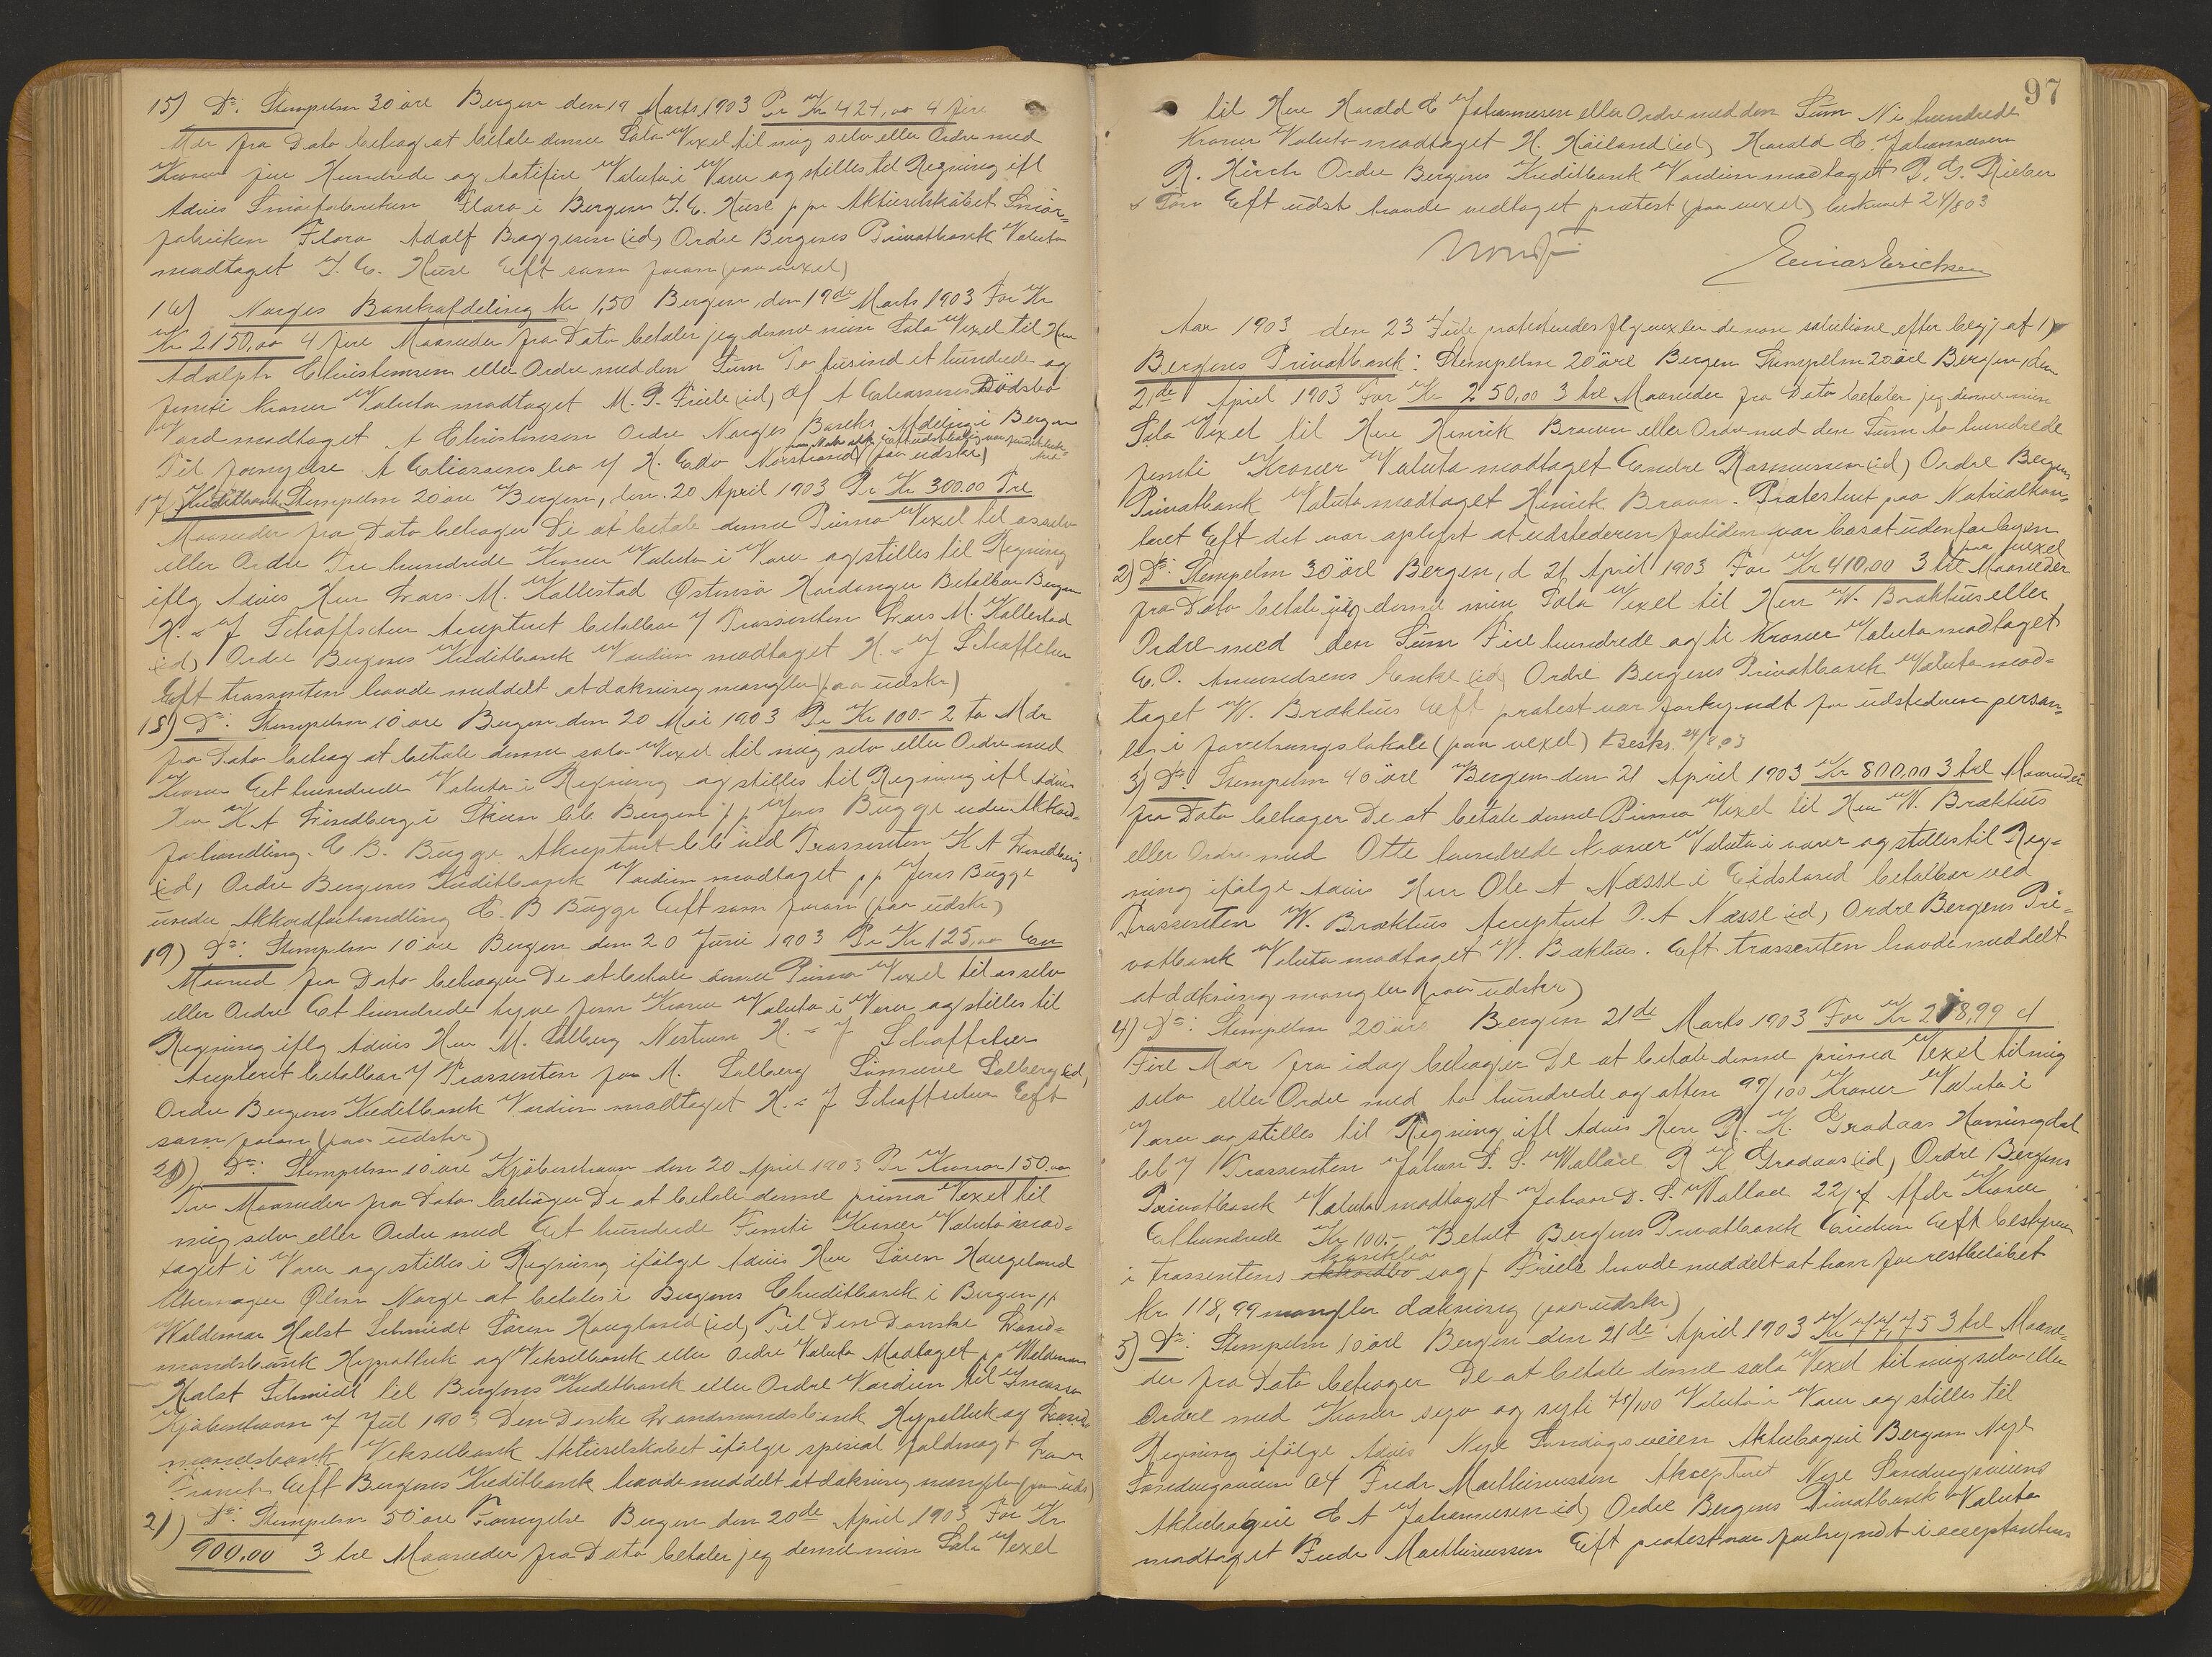 15) Do: Stempelm 30 öre Bergen den 19 Marts 1903 Pr Kr 424,00 4 fire
Mdr fra Dato behag at betale denne Sola Vexel til mig selv eller Ordre med
Kroner fire Hundrede og Valuta i Varer og stilles til Regning ifl
Advis Smörfabriken Flora i Bergen J. C. Huse p pr Aktieselskabet Smör-
fabriken Flora Adolf Braggesen (id) Ordre Bergens Privatbank Valuta
modtaget J. C. Huse Eft som foran (paa vexel)
16) Norges Bankafdeling Kr 1,50 Bergen, den 19de Marts 1903 For Kr
Kr 2150,00 4 fire Maaneder fra Dato betaler jeg denne min Sola Vexel til Herr
Adolph Christensen eller Ordre med den Sum To tusind et hundrede og
femti Kroner Valuta modtaget M. G. Friele (id) A Eliassens Dödsbo
Værd modtaget A Christensen Ordre Norges Banks Afdeling i Bergen
Til fornyelse A Eliassens bo H. Edv Norstrand (paa udstkr)
17) Kreditbank Stempelm 20 öre Bergen, den 20 April 1903 Pr Kr 300.00 Tre
Maaneder fra Dato behager De at betale denne Prima Vexel til os selv
eller Ordre Tre hundrede Kroner Valuta i Varer og stilles til Regning
iflg Advis Herr Lars M. Kallestad Östensö Hardanger Betalbar Bergen
H. & J Schaffscher Acceptert betalbar Trassenten Lars M. Kallestad
(id) Ordre Bergens Kreditbank Værdien modtaget H. & J Schaffscher
Eft trassenten havde meddelt at dækning mangler (paa udstkr)
18) Do: Stempelm 10 öre Bergen den 20 Mai 1903 Pr Kr 100.- 2 to Mdr
fra Dato behag at betale denne sola Vexel til mig selv eller Ordre med
Kroner Et hundrede Valuta i Regning og stilles til Regning ifl Advis
Herr K. A Lindberg i Skien bb Bergen pp Jens Bugge under Akkord-
forhandling. C. B. Bugge. Akcepteret bb ved Trassenten K A Lindberg
(id) Ordre Bergens Kreditbank Værdien modtaget pp Jens Bugge
under Akkordforhandling C. B Bugge Eft som foran (paa udstkr)
19) Do: Stempelm 10 öre Bergen den 20 Juni 1903 Pr Kr 125,00 En
Maaned fra Dato behager De at betale denne Prima Vexel til os selv
eller Ordre Et hundrede tyve fem Kroner Valuta i Varer og stilles til
Regning iflg Advis Herr M. Solberg Nestuen H. & J Schaffscher
Acepteret betalbar Trassenten for M. Solberg Solberg (id)
Ordre Bergens Kreditbank Værdien modtaget H. & J Schaffscher Eft
som foran (paa udstkr)
20) Do: Stempelm 10 öre Kjöbenhavn den 20 April 1903 Pr Kroner 150.00
Tre Maaneder fra Dato behager De at betale denne prima Vexel til
mig selv eller Ordre med Et hundrede Femti Kroner Valuta mod-
taget i Varer og stilles i Regning ifölge Advis Herr Sören Haugeland
Uhrmager Ölen Norge at betales i Bergens Creditbank i Bergen pp
Waldemar Holst Schmidt Sören Haugland (id) Til Den Danske Land-
mandsbank Hypothek og Vekselbank eller Ordre Valuta Modtaget pp Waldemar
Holst Schmidt til Bergens Kreditbank eller Ordre Værdien til Incasso
Kjöbenhavn Juli 1903 Den Danske Landmandsbank Hypothek og
Vekselbank Aktieselskabet ifölge special fuldmagt
Eft Bergens Kreditbank havde meddelt at dækning mangler (paa uds)
21) Do: Stempelm 50 öre Fornyelse Bergen den 20de April 1903 For Kr
900,00 3 tre Maaneder fra Dato betaler jeg denne min Sola Vexel
97
til Herr Harald C Johannesen eller Ordre med den Sum Ni hundrede
Kroner Valuta modtaget H. Häiland (id) Harald C. Johannesen
R. Hirsch Ordre Bergens Kreditbank Værdien modtaget P. G. Rieber
& Sön Eft udst havde vedtaget protest (paa vexel) beskrevet 24/8 03
Einar Erichsen
Aar 1903 den 23 Juli protesteredes flg vexler de non solutione efter begj af 1)
Bergens Privatbank: Stempelm 20 öre Bergen Stempelm 20 öre Bergen, den
21de April 1903 For Kr 250,00 3 tre Maaneder fra Dato betaler jeg denne min
Sola Vexel til Herr Henrik Brown eller Ordre med den Sum to hundrede
femti Kroner Valuta modtaget Endre Rasmussen (id) Ordre Bergens
Privatbank Valuta modtaget Henrik Brown. Protesteret paa Notarialkon-
toret Eft det var oplyst at udstederen fortiden var bosat udenfor byen
paa vexel
2) Do: Stempelm 30 öre Bergen, d 21 April 1903 For Kr 410,00 3 tre Maaneder
fra Dato betale jeg denne min Sola Vexel til Herr W. Brækhus eller
Ordre med den Sum Fire hundrede og ti Kroner Valuta modtaget
E. O. Amundsens Enke (id) Ordre Bergens Privatbank Valuta mod-
taget W. Brækhus Eft protest var forkyndt for udstederen person-
lig i forretningslokale (paa vexel) Beskr. 24/8 03
3) Do: Stempelm 40 öre Bergen den 21 April 1903 Kr 800,00 3 tre Maaneder
fra Dato behager De at betale denne Prima Vexel til Herr W. Brækhus
eller Ordre med Otte hundrede Kroner Valuta i varer og stilles til Reg-
ning ifölge Advis Herr Ole A Næsse i Eidsland betalbar ved
Trassenten W. Brækhus Acceptert O. A Næsse (id) Ordre Bergens Pri-
vatbank Valuta modtaget W. Brækhus. Eft trassenten havde meddelt
at dækning mangler (paa udstkr)
4) Do: Stempelm 20 öre Bergen 21de Marts 1903 For Kr 218,99 4
Fire Mdr fra idag behager De at betale denne prima Vexel til mig
selv eller Ordre med to hundrede og atten 99/100 Kroner Valuta i
Varer og stilles til Regning ifl Advis Herr R. K. Gradaas Honningdal
bb Trassenten Johan D. S. Wallace R K Gradaas (id) Ordre Bergens
Privatbank Valuta modtaget Johan D. S. Wallace 22/7 Afdr Kroner
Ethundrede Kr 100.- Betalt Bergens Privatbank Eft bestyreren
konkbo
i trassentens akkordbo sagf Friele havde meddelt at han for restbelöbet
Kr 118,99 mangler dækning (paa udstkr)
5) Do: Stempelm 10 öre Bergen den 21de April 1903 Kr 77,75 3 tre Maane-
der fra Dato behager De at betale denne sola Vexel til mig selv eller
Ordre med Kroner syv og sytti 75/100 Valuta i Varer og stilles til
Regning ifölge Advis Nye Sandvigsveien Aktiebageri Bergen Nye
Sandvigsveien 64 Fredr Marthinussen Akcepteret Nye Sandvigsveiens
Aktiebageri C A Johannesen (id) Ordre Bergens Privatbank Valuta
modtaget Fredr Marthinussen Eft protest var forkyndt i acceptantens